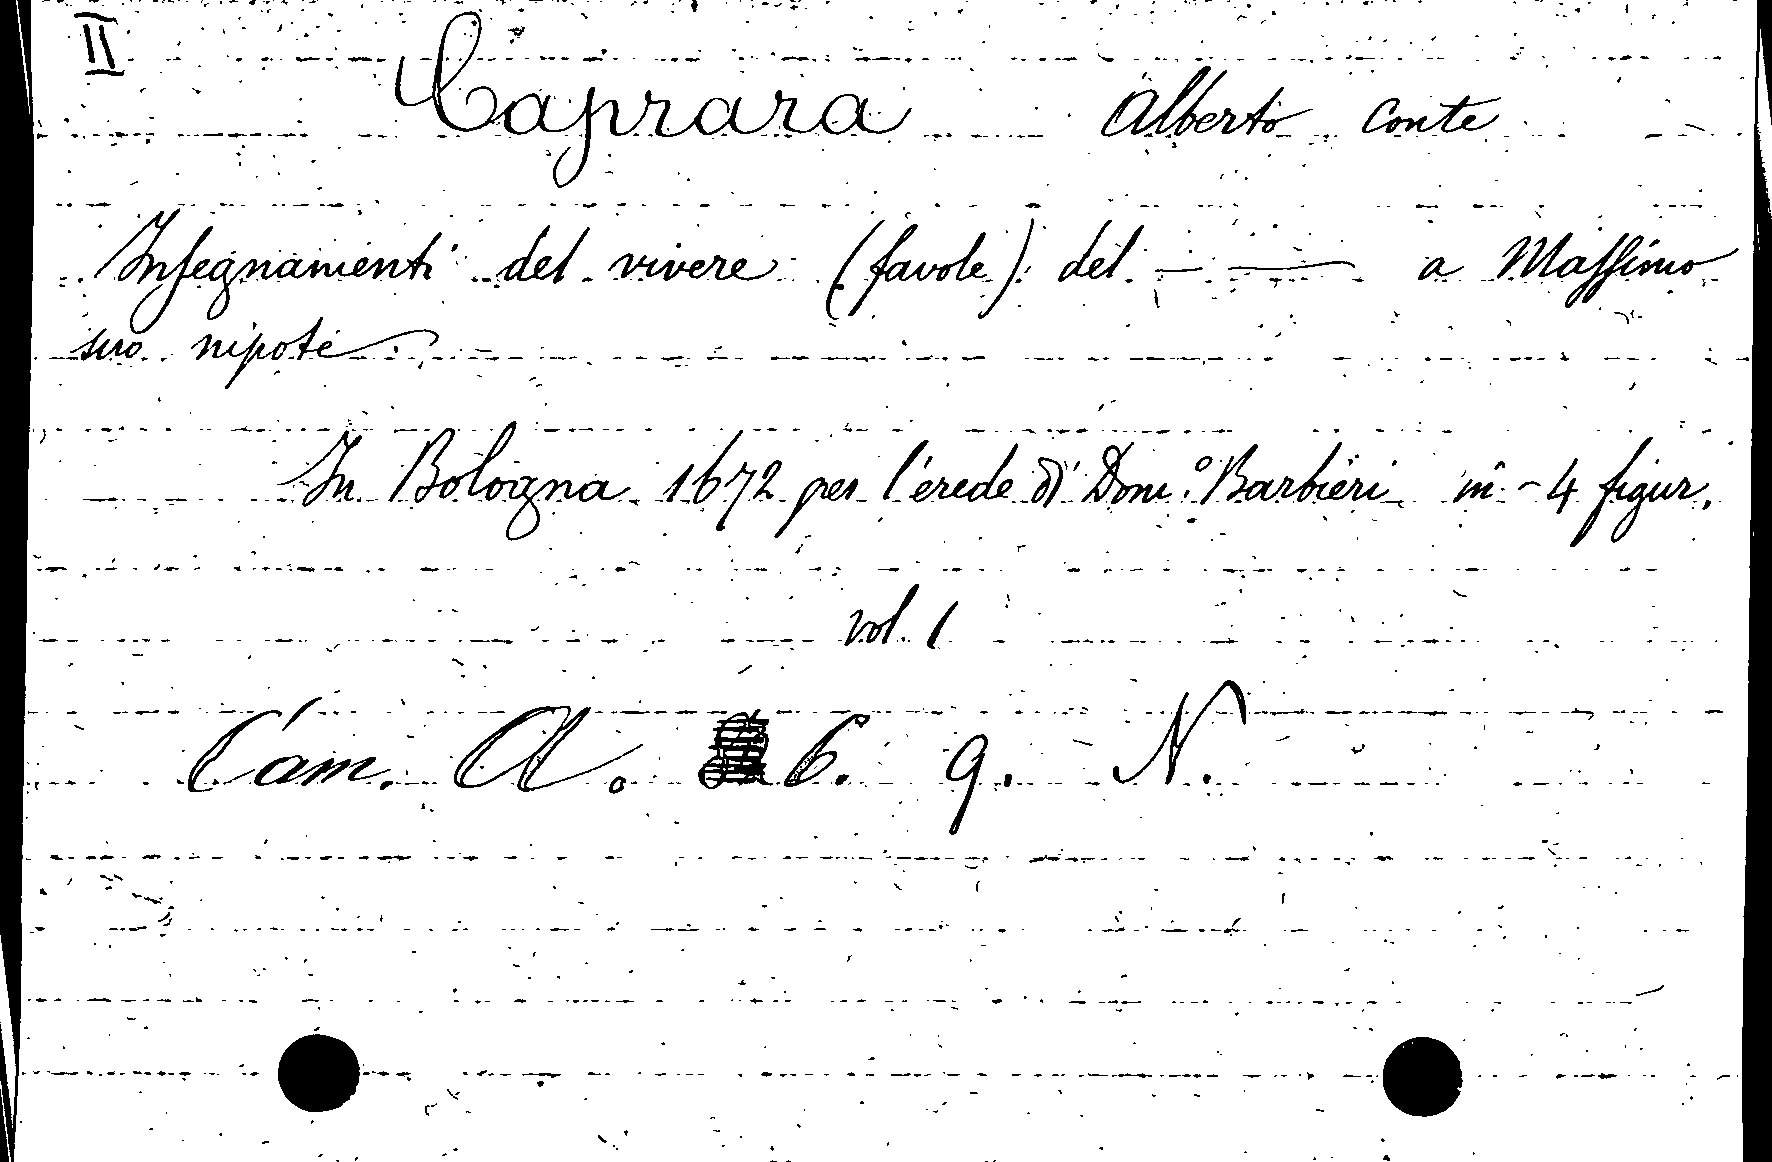 II
Caprara Alberto Conte
Insegnamenti del vivere (favole) del — — a Massimo
suo nipote
In Bologna 1672 per l'erede di Dom.º Barbieri in-4 figur.
vol. 1
Cam. A. 6. 9. N.